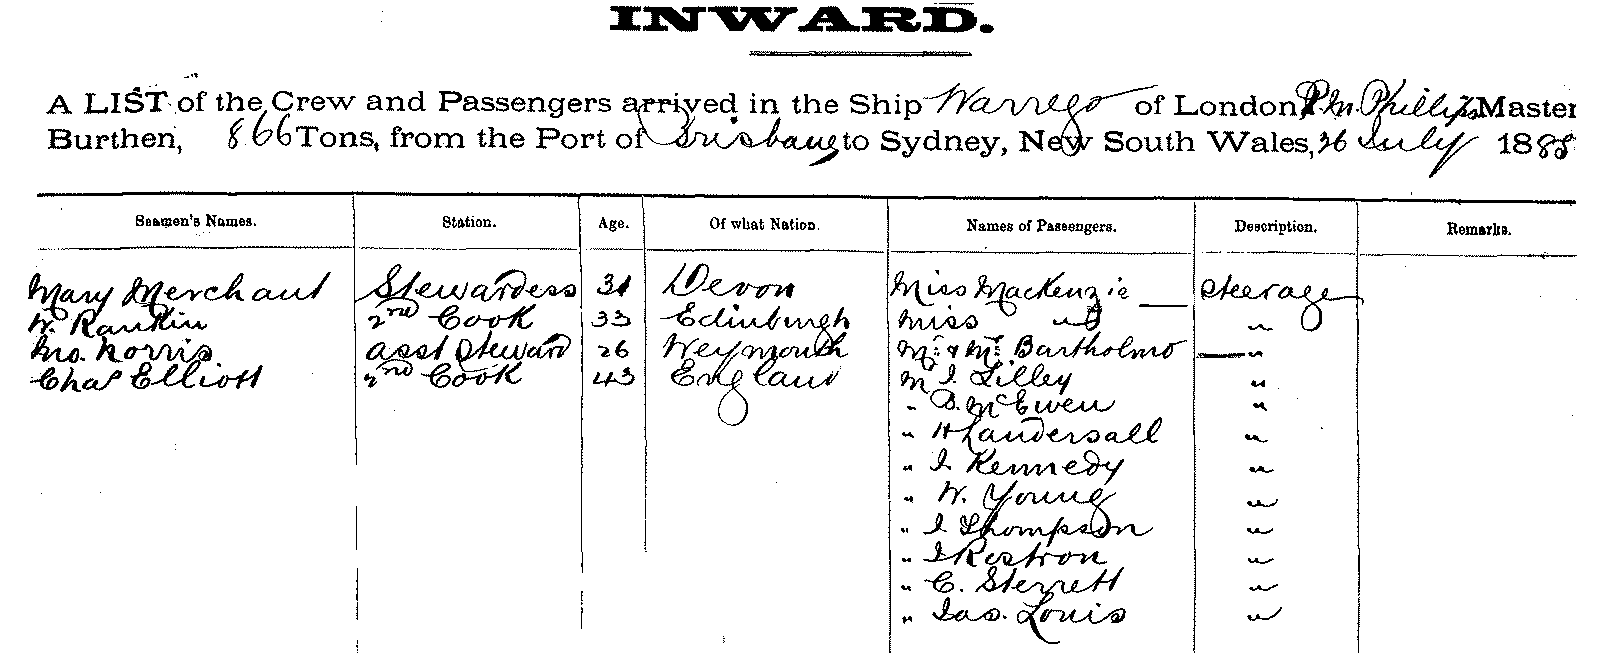 INWARD.
A LIST of the Crew and Passengers arrived in the Ship Warrego of London, P. M. Phillips Master
Burthen, 866 Tons, from the Port of Brisbane to Sydney, New South Wales, 26 July 1888
Seamen's Names. Station. Age. Of what Nation. Names of Passengers. Description. Remarks.
Mary Merchant Stewardess 31 Devon Miss MacKenzie steerage
W. Rankin 2nd Cook 33 Edinburgh Miss " "
Jno. Norris asst Steward 26 Weymouth Mr & Mrs Bartholmo "
Chas Elliott 2nd Cook 43 England Mr J. Lilley "
" D. McEwen "
" H Laudersall "
" J. Kennedy "
" W. Young "
" J. Thompson "
" J Rostron "
" C. Sterrett "
" Jas. Louis "